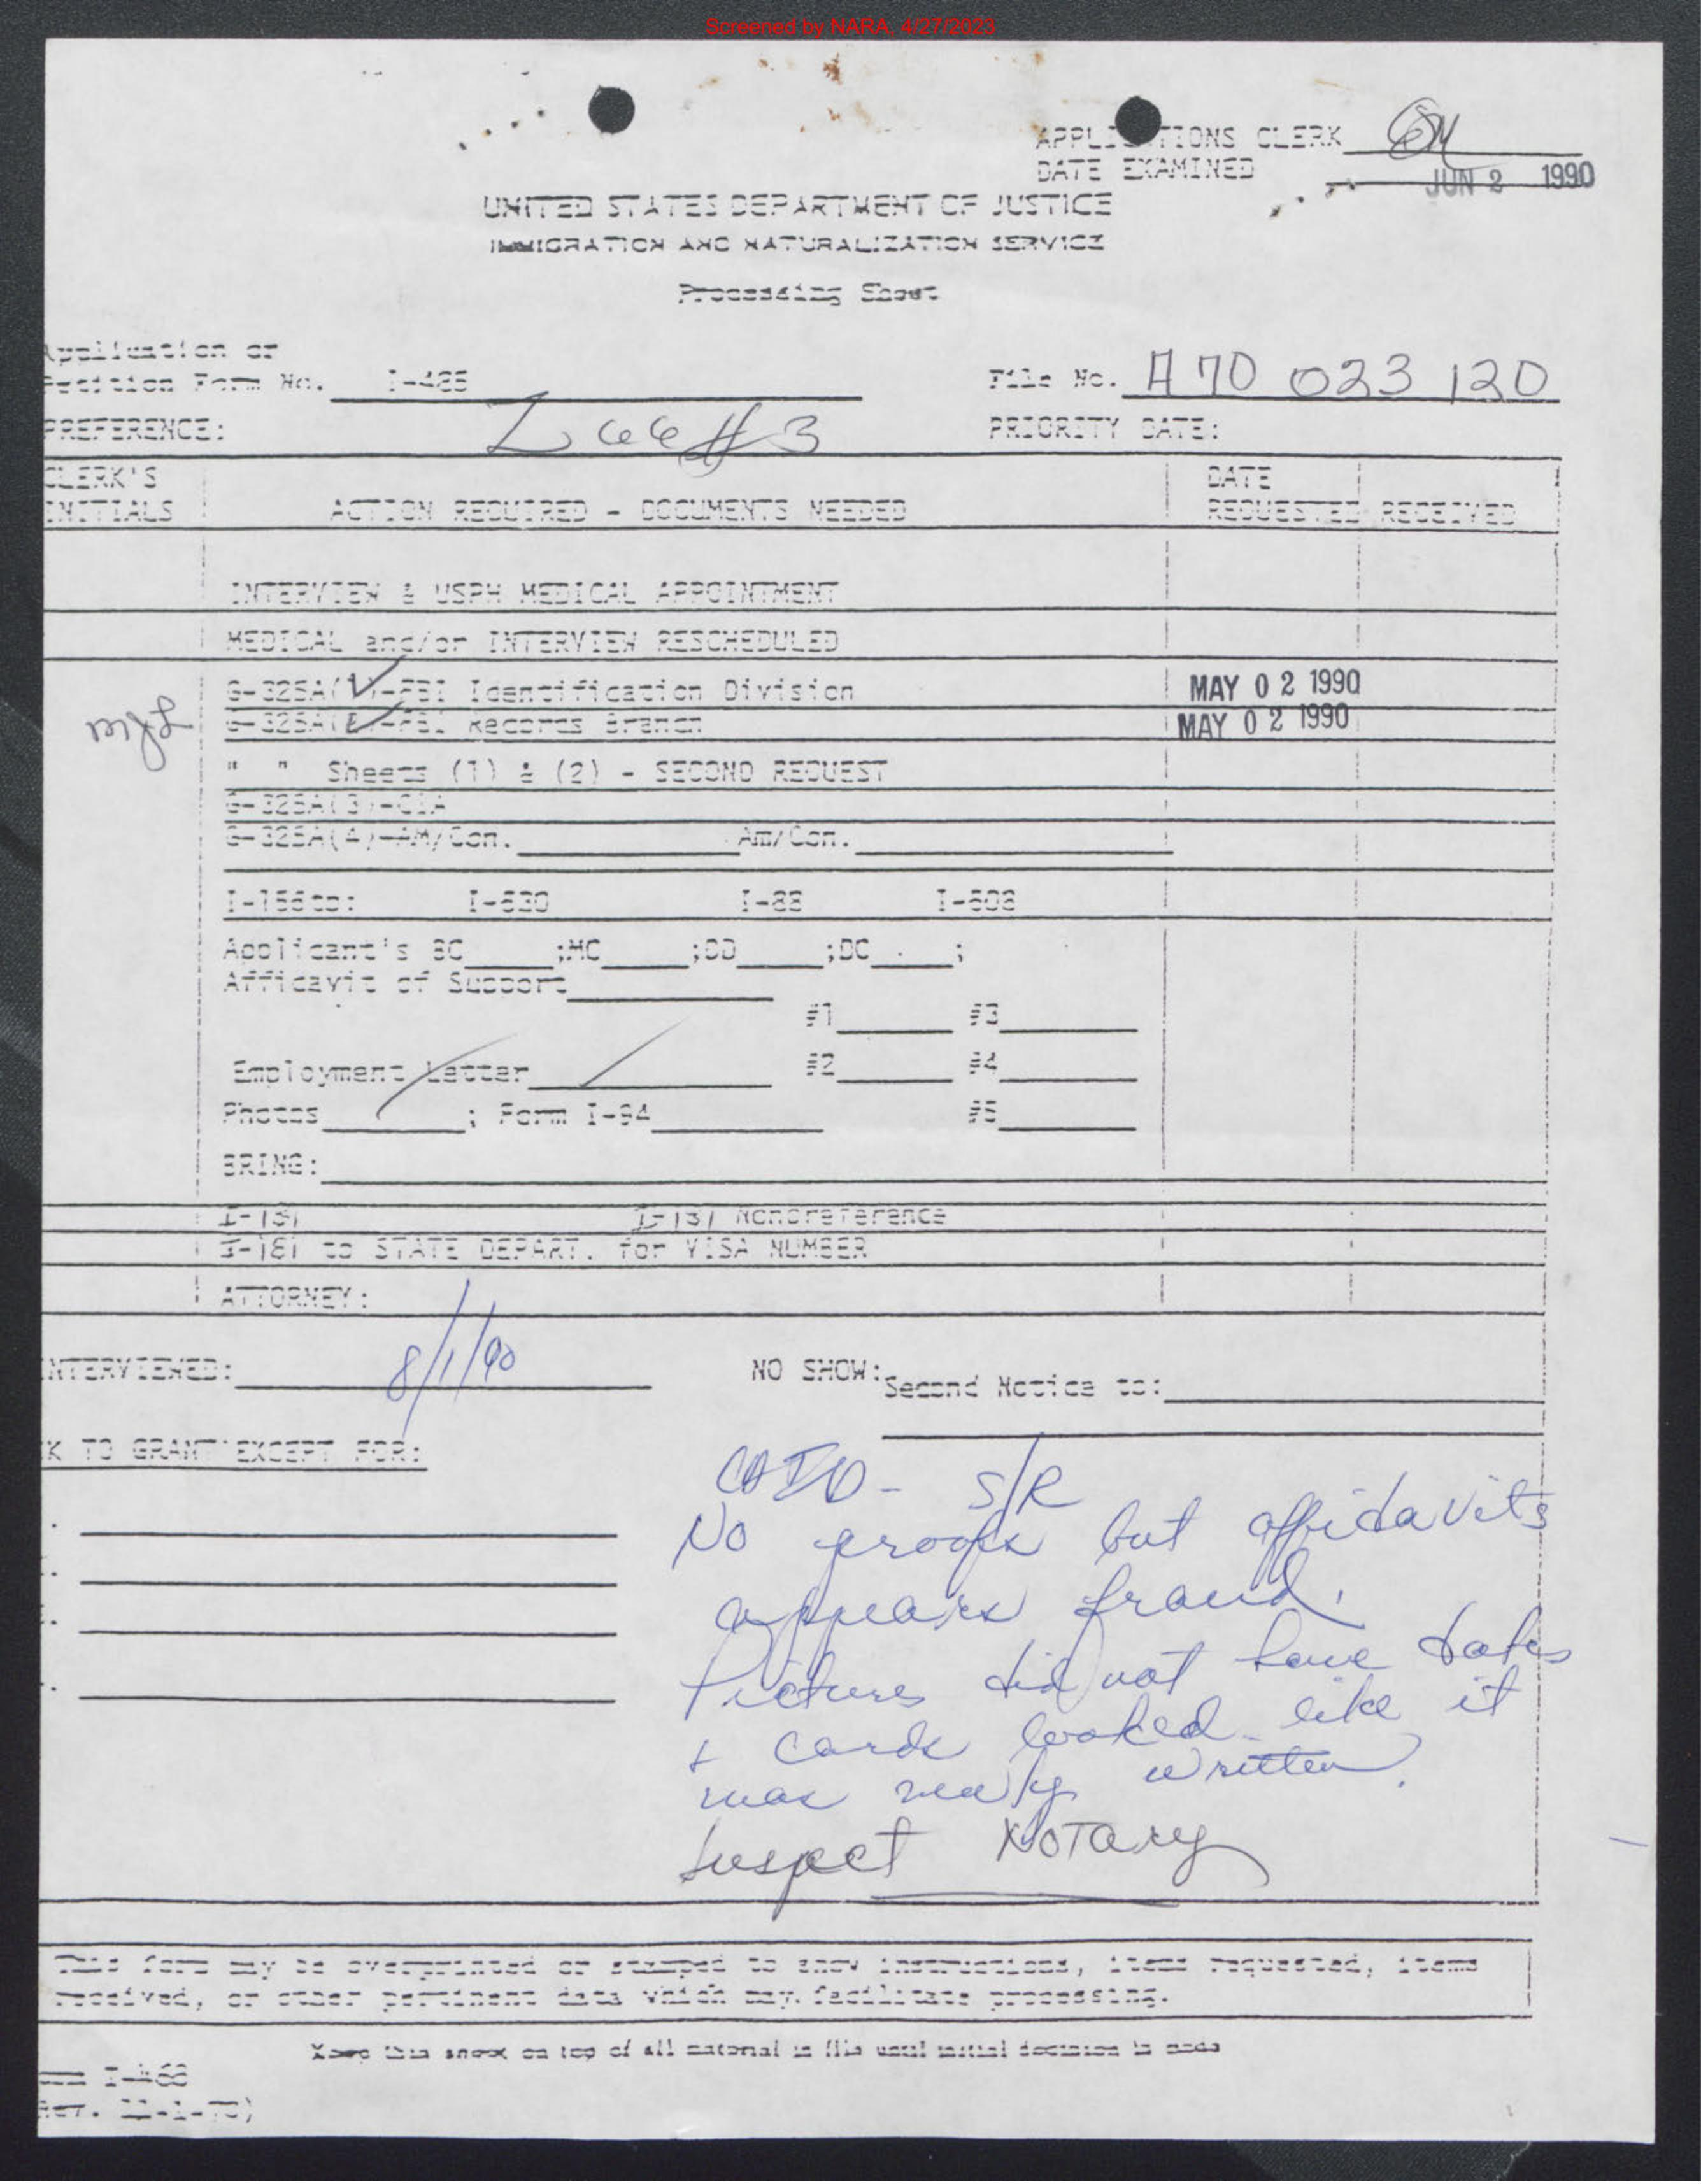 Screened by NARA, 4/27/2023
APPLICATIONS CLERK
DATE EXAMINED JUN 2 1990
UNITED STATES DEPARTMENT OF JUSTICE
IMMIGRATION AND NATURALIZATION SERVICE
Processing Sheet
Application or
Petition Form No. I-485
File No. A 70 023 120
PREFERENCE:
PRIORITY DATE:
CLERK'S
INITIALS
ACTION REQUIRED - DOCUMENTS NEEDED
DATE
REQUESTED RECEIVED
INTERVIEW & USPH MEDICAL APPOINTMENT
MEDICAL and/or INTERVIEW RESCHEDULED
G-325A( )-FBI Identification Division MAY 02 1990
G-325A( )-FBI Records Branch MAY 02 1990
" " Sheets (1) & (2) - SECOND REQUEST
G-325A(3)-CIA
G-325A(4)-AM/Con. Am/Con.
I-156to: I-530 I-88 I-508
Applicant's BC ;MC ;DD ;DC ;
Affidavit of Support
#1 #3
Employment Letter #2 #4
Photos ; Form I-94 #5
BRING:
I-181 I-181 Nonpreference
I-181 to STATE DEPART. for VISA NUMBER
ATTORNEY:
INTERVIEWED: 8/1/90
NO SHOW: Second Notice to:
K TO GRANT EXCEPT FOR:
S/R
No proofs but affidavits
appears fraud.
Pictures did not have dates
+ cards looked like it
was newly written.
Suspect Notary
This form may be overprinted or stamped to show instructions, items requested, items
received, or other pertinent data which may facilitate processing.
Keep this sheet on top of all material in file until initial decision is made
I-468
Rev. 11-1-73)